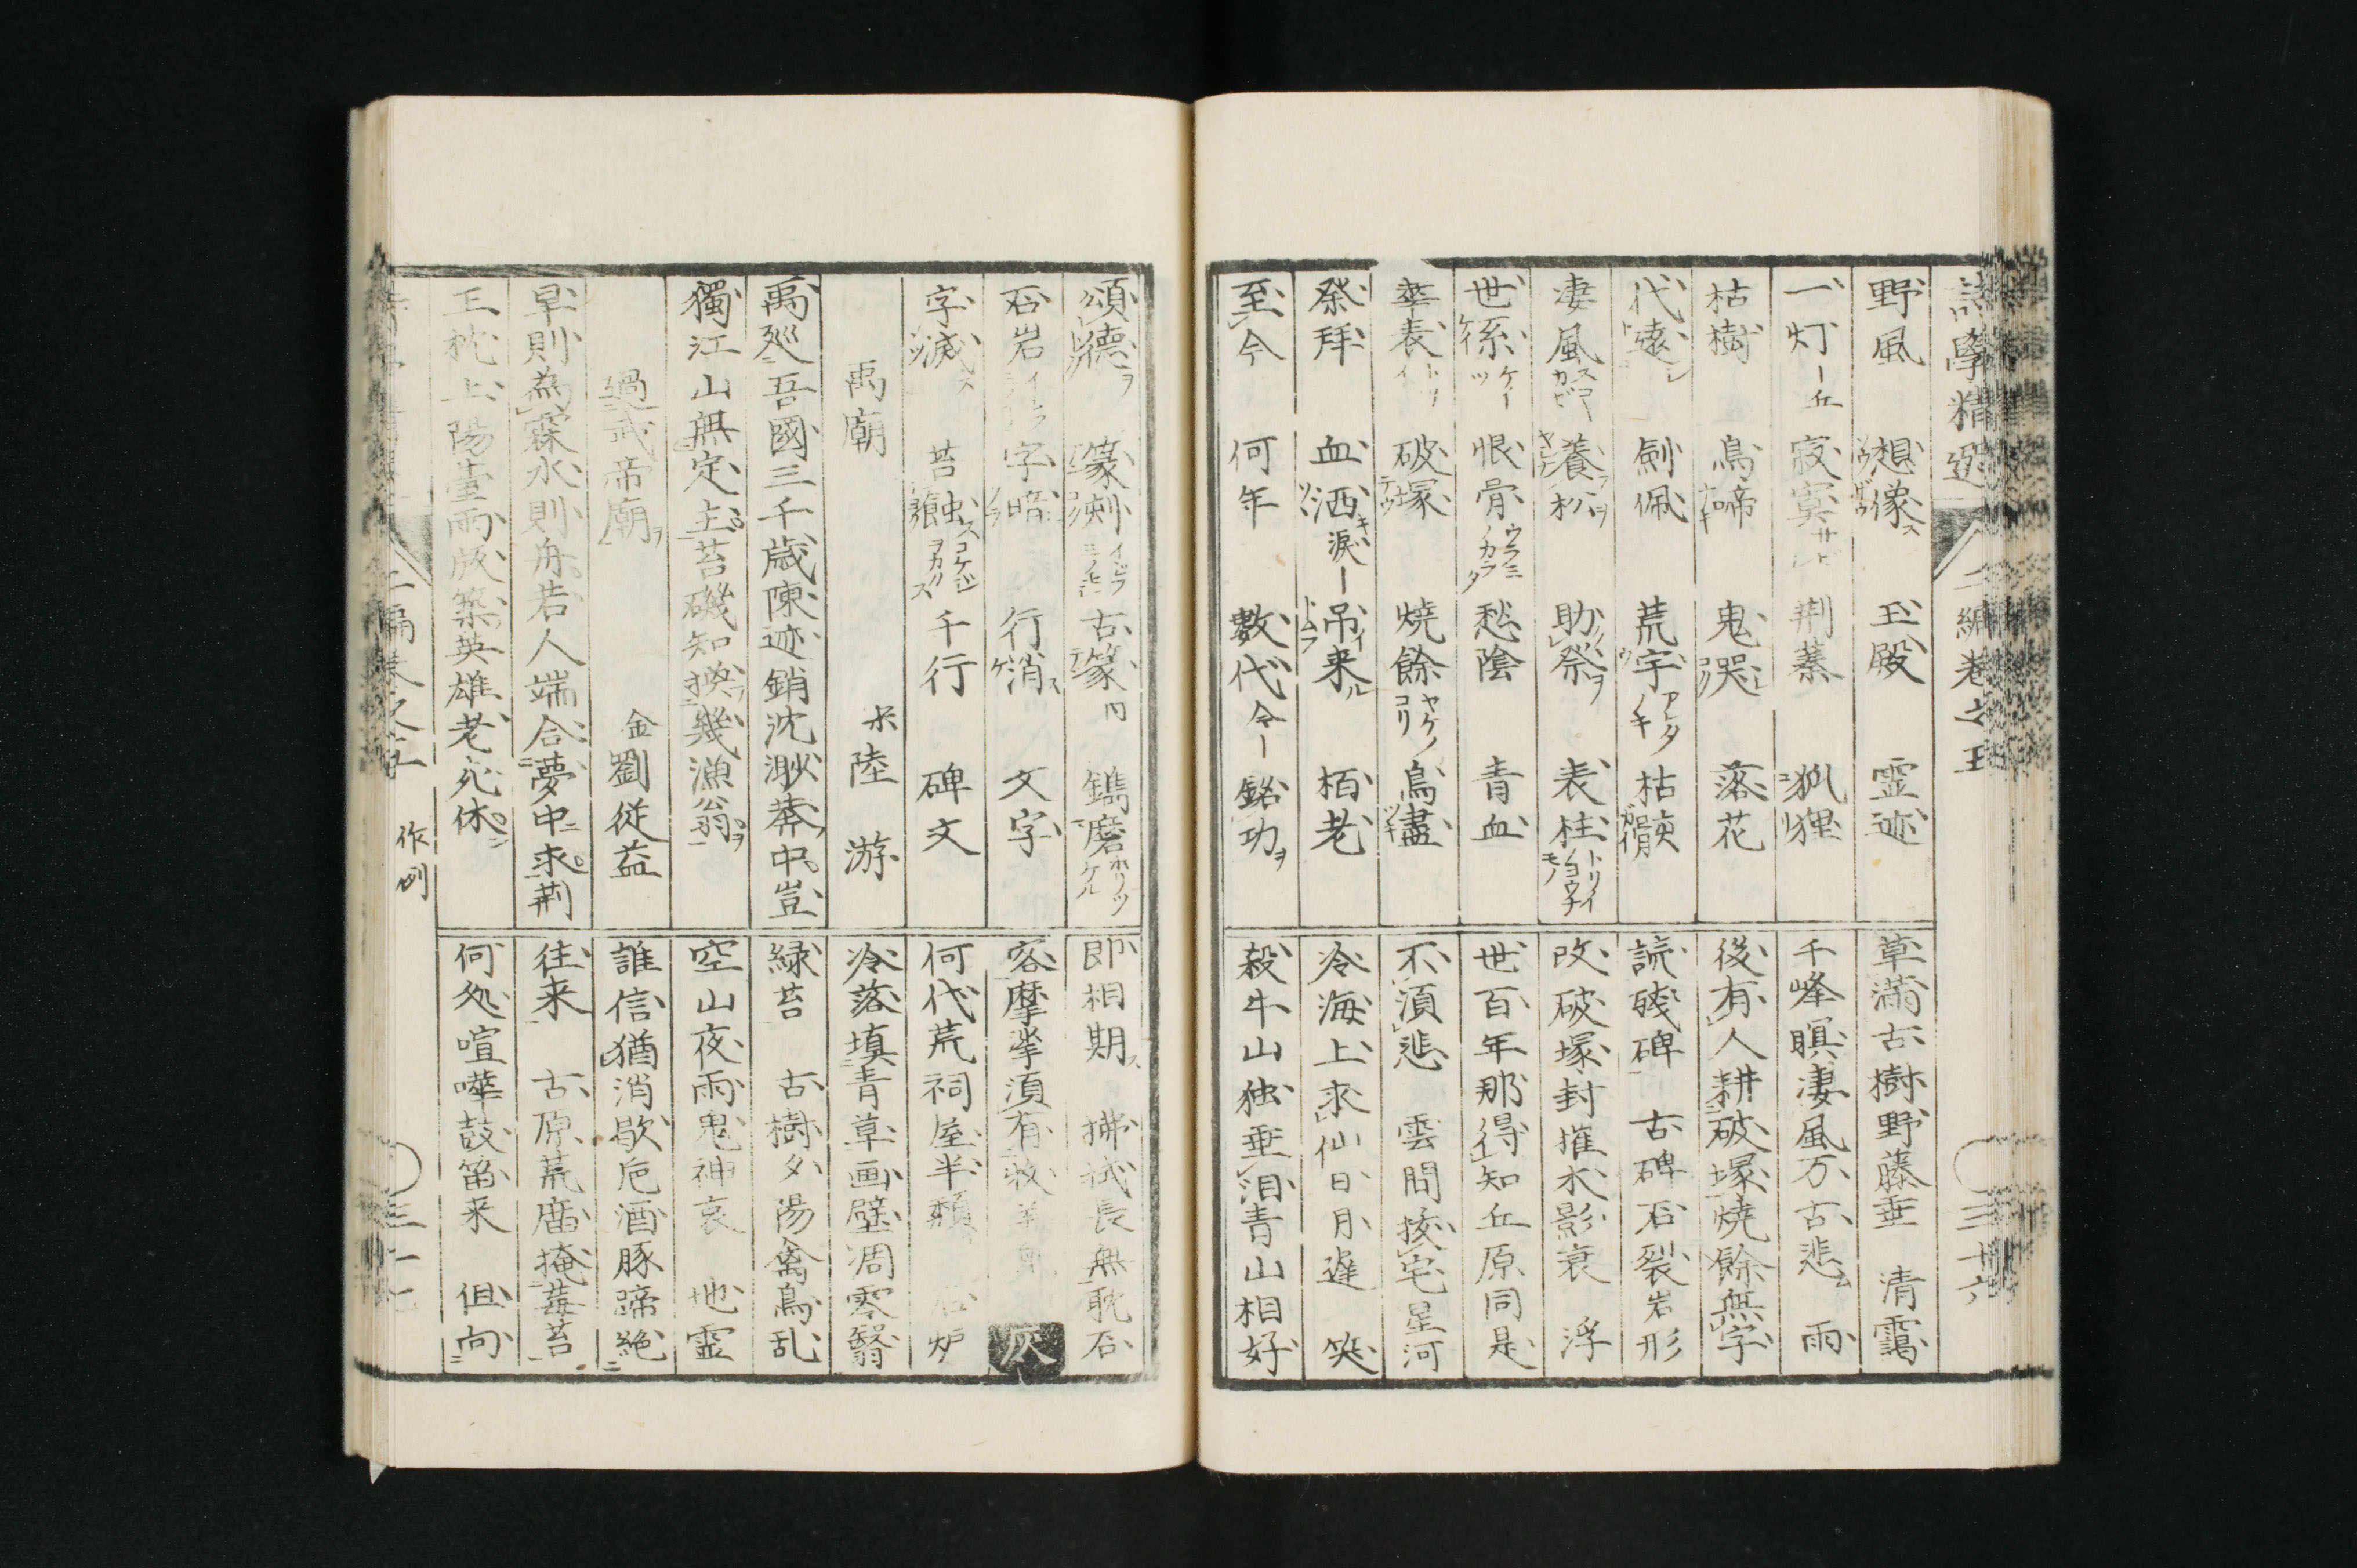 詩學精選 二編巻之五 三十六
野風 想像 玉殿 霊迹
一灯 寂寞 荆蓁 狐狸
枯樹 鳥啼 鬼哭 落花
代遠 劍佩 荒宇 枯顱
凄風 養松 助祭 表柱
世系 恨骨 愁陰 青血
華表 破塚 焼餘 鳥盡
祭拜 血洒 涙 吊来 栢老
至今 何年 數代 銘功
草満古樹野藤垂 清靄
千峰瞑凄風万古悲 雨
後有人耕破塚焼餘無字
読残碑 古碑石裂岩形
改破塚封摧水影衰 浮
世百年那得知丘原同是
不須悲 雲間掖宅星河
冷海上求仙日月遅 笑
殺牛山独垂泪青山相好
頌德 篆刻 古篆 鐫磨
石岩 字暗 行消 文字
字滅 苔蝕 千行 碑文
禹廟 宋陸游
禹廵吾國三千歳陳迹銷沈渺莽中豈
獨江山無定主苔磯知換幾漁翁
過武帝廟 金劉従益
早則為霖水則舟若人端合夢中求荆
王枕上陽臺雨版築英雄老死休
即相期 拂拭長無耽石
客摩挲須有 灰
何代荒祠屋半頽 炉
冷落填青草画壁凋零翳
緑苔 古樹夕陽禽鳥乱
空山夜雨鬼神哀 地霊
誰信猶消歇卮酒豚蹄絶
往来 古原荒庿掩莓苔
何処喧嘩鼓笛来 但向
二編巻之五 作例 三十七